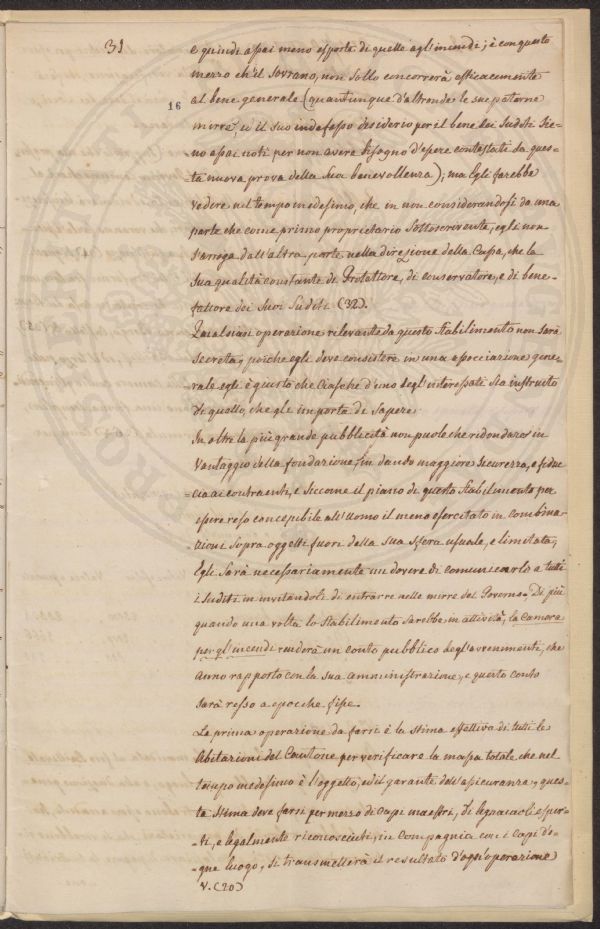 31
16
e quindi assai meno esposte di quelle agl'incendi; è con questo
mezzo ch'il Sovrano, non Sollo concorrerà efficacemente
al bene generale (quantunque d'altronde le sue paterne
mirre, ed il suo indefesso desiderio per il bene dei Sudditi Sie=
no assai noti per non avere bisogno d'essere contestati da ques=
=ta nuova prova della Sua benevollenza); ma Egli farebbe
vedere nel tempo medesimo, che in non considerandosi da una
parte che come primo proprietario Sottoscrivente, egli non
s'arroga dall'altra parte nella direzione della Cassa, che la
Sua qualità constante di Protettore, di conservatore, e di bene=
fattore dei Suoi Sudditi (32).
Qualsiasi operazione rilevante da questo Stabilimento non Sarà
Secretta, poiche egli deve consistere in una associazione gene=
rale egli è giusto che Ciasche d'uno degl'interessati Sia instruito
di quello, che gli importa di Sapere.
In oltre la più grande pubblicità non puole che ridondare in
Vantaggio della fondazione in dando maggiore Securezza, e fidu=
=cia ai contraenti, e Siccome il piano di questo Stabilimento per
essere reso concepibile all'Uomo il meno esercitato in Combina=
=zioni Sopra oggetti fuori della Sua Sfera usuale, e limitata,
Egli Sarà necessariamente un dovere di comunicarlo a tutti
i Sudditi in invitandoli di entrarre nelle mirre del Governo. Di più
quando una volta lo Stabilimento sarebbe in attività, la Camera
per gl'incendi renderà un conto pubblico degl'avenimenti, che
anno rapporto con la Sua amministrazione, e questo conto
sarà resso a epocche fisse.
La prima operazione da farsi è la Stima effettiva di tutti le
Abitazioni del Cantone per verificare la massa totale che nel
tempo medesimo è l'oggetto, ed il garante dell'assicuranza, ques=
ta Stima deve farsi per mezzo di Capi maestri, di legnaioli esper=
=ti, e legalmente riconosciuti, in Compagnia con i Capi d'o=
=gne luogo, Si transmetterà il resultato d'ogn'operazione
V. (20)